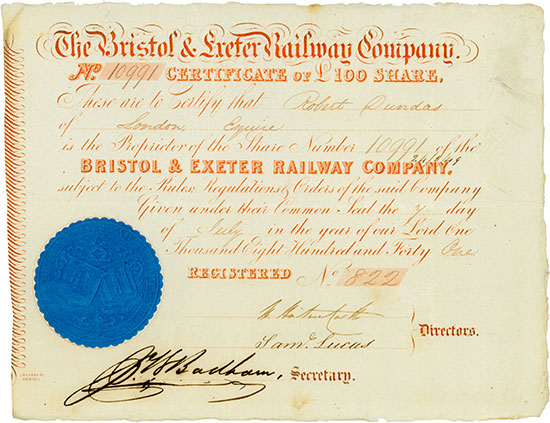 The Bristol & Exeter Railway Company.
No. 10991 CERTIFICATE OF £100 SHARE.
These are to Certify that Robert Dundas
of London, Esquire
is the Proprietor of the Share Number 10991 of the
BRISTOL & EXETER RAILWAY COMPANY.
subject to the Rules, Regulations & Orders of the said Company
Given under their Common Seal the 7 day
of July in the year of our Lord One
Thousand Eight Hundred and Forty One
REGISTERED No. 822
Saml. Lucas
Directors.
Badham, Secretary.